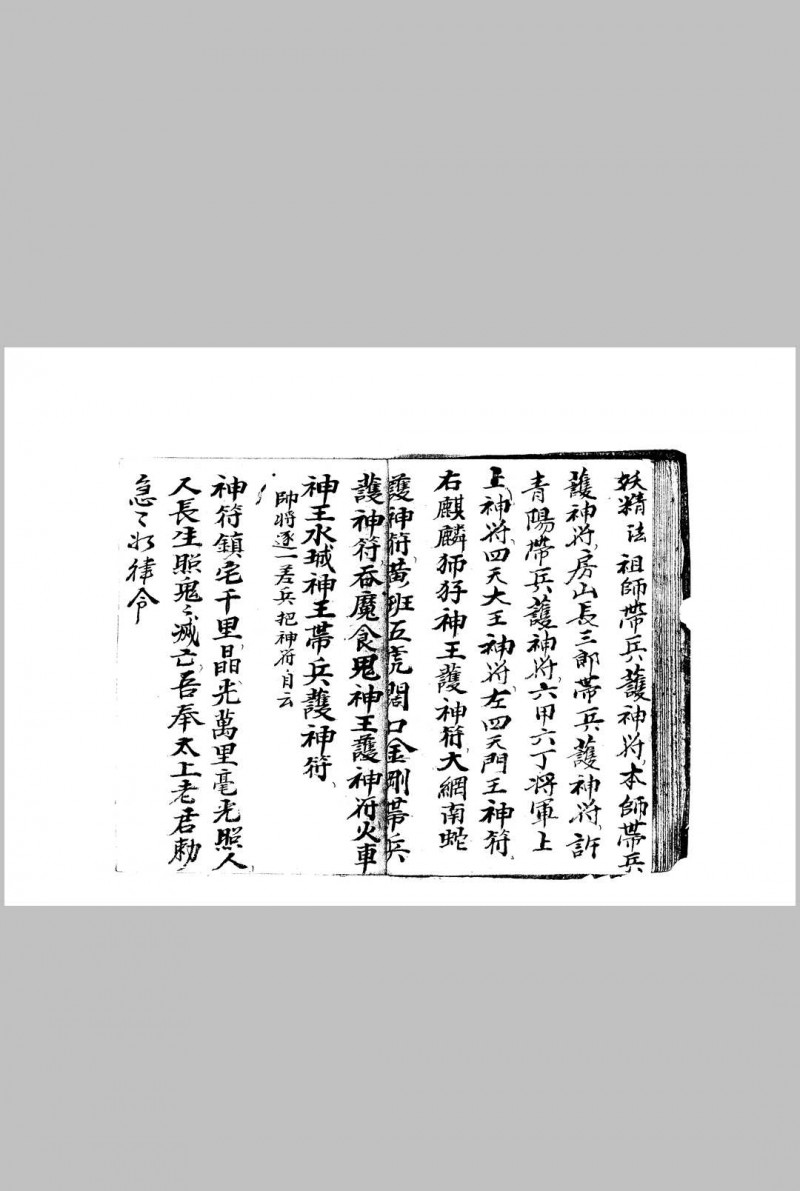 妖精法祖師帶兵護神將本師帶兵
護神將房山長三郎帶兵護神將許
青陽帶兵護神將六甲六丁將軍上
上神將四天大王神將左四天門王神符
右麒麟獅子神王護神符大網南蛇
護神符黃班五虎闊口金剛帶兵
護神符吞魔食鬼神王護神符火車
神王水城神王帶兵護神符
帥將逐一差兵把神符自云
神符鎮宅千里晶光萬里毫光照人
人長生照鬼〻滅亡吾奉太上老君勅
急〻如律令